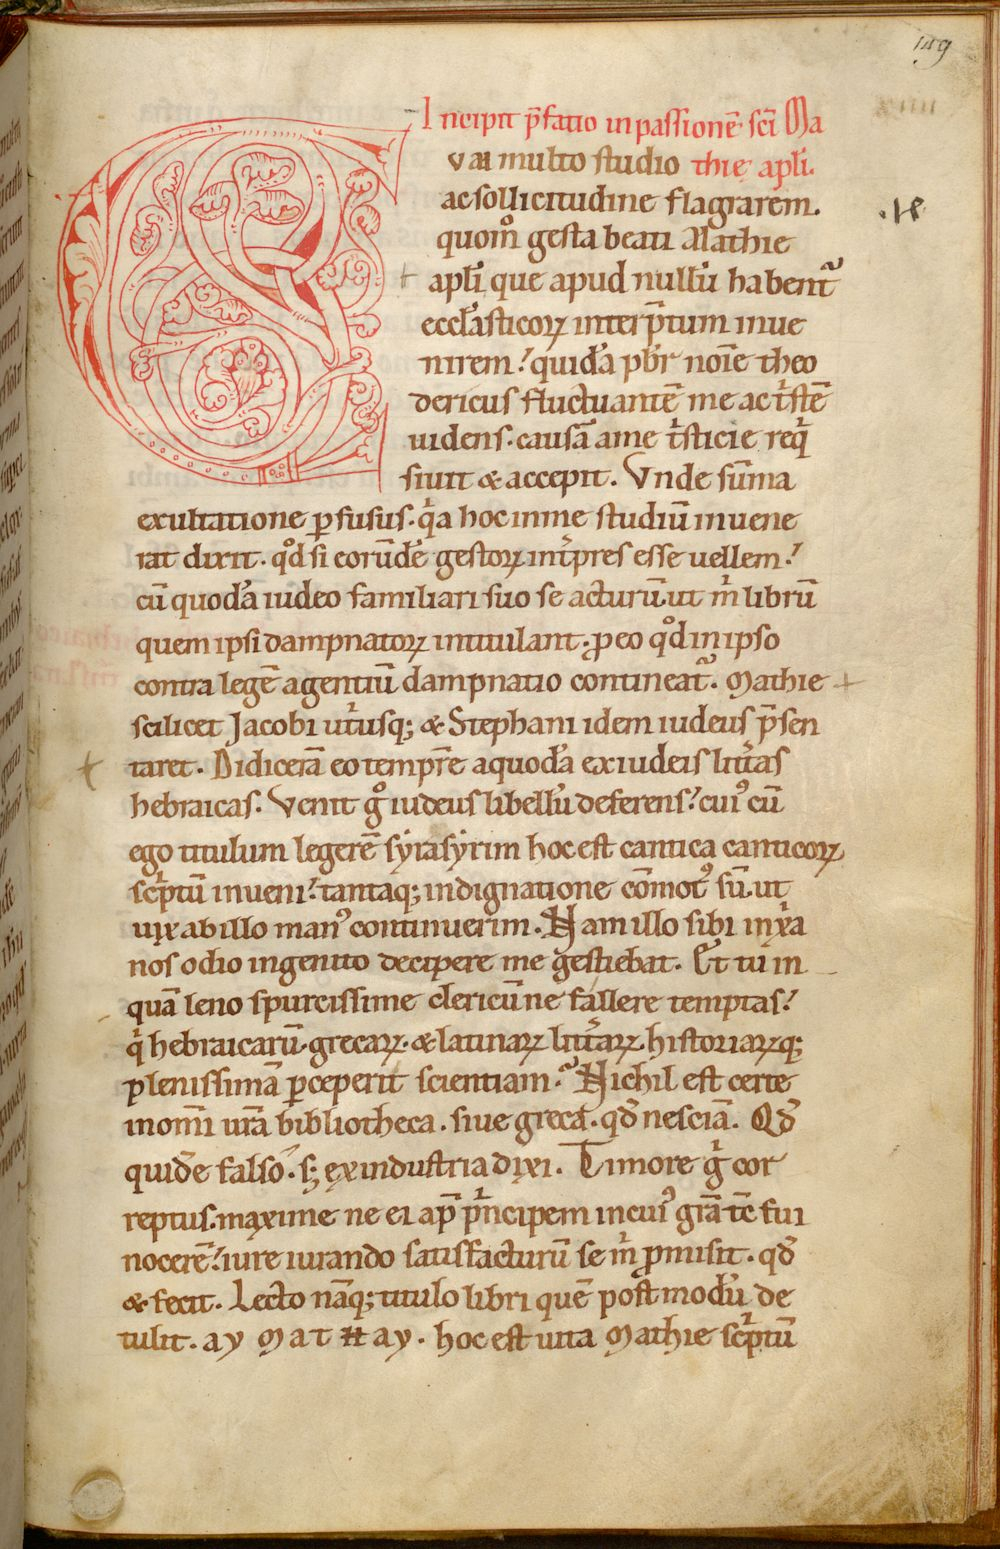 149
Incipit p̄fatio in passionē sc̄i Ma
Cum multo studio thię apl̄i.
ac sollicitudine flagrarem.
quom̊ gesta beati Mathie
apl̄i que apud nullū habentᷣ
eccl̄asticoꝝ interp̄tum inue
nirem! quidā pb̄r noīe theo
dericus fluctuantē me ac tͥstē
uidens. causā a me tͥsticie reqͥ
siuit & accepit. Vnde sūma
exultatione ꝑfusus. qͥa hoc in me studiū inuene
rat dixit. qͦd si eorūdē gestoꝝ int̄pres esse uellem!
cū quodā iudeo familiari suo se acturū. ut m̄ librū
quem ipsi dampnatoꝝ intitulant. ꝓ eo qͦd in ipso
contra legē agentiū dampnatio contineatᷣ. Mathie
scilicet Jacobi ut̄usqꝫ & Stephani idem iudeus p̄sen
taret. Didicerā eo temp̄re a quodā ex iudeis litt̄as
hebraicas. Venit gͦ iudeus libellū deferens! cuiꝰ cū
ego titulum legerē syrasyrim hoc est cantica canticoꝝ
sc̄ptū inueni! tantaqꝫ indignatione cōmotꝰ sū. ut
uix ab illo manꝰ continuerim. Nam illo sibi in xͥa
nos odio ingenito decipere me gestiebat. Et tu in
quā leno spurcissime clericūne fallere temptas!
qͥ hebraicarū. grecaꝝ. & latinaꝝ litt̄aꝝ. historiaꝝqꝫ
plenissimā ꝑceperit scientiam. Nichil est certe
in om̄i ur̄a bibliotheca. siue greca. qd̄ nesciā. Qd̄
quidē falso. sꝫ ex industria dixi. Timore gͥ cor
reptus. maxime ne ei ap̄ pͥncipem in cuiꝰ gr̄a tc̄ fui
nocerē! iure iurando satisfacturū se m̄ ꝓmisit. qd̄
& fecit. Lecto nāqꝫ titulo libri quē post modū de
tulit. ay Mathay. hoc est uita Mathie sc̄ptū